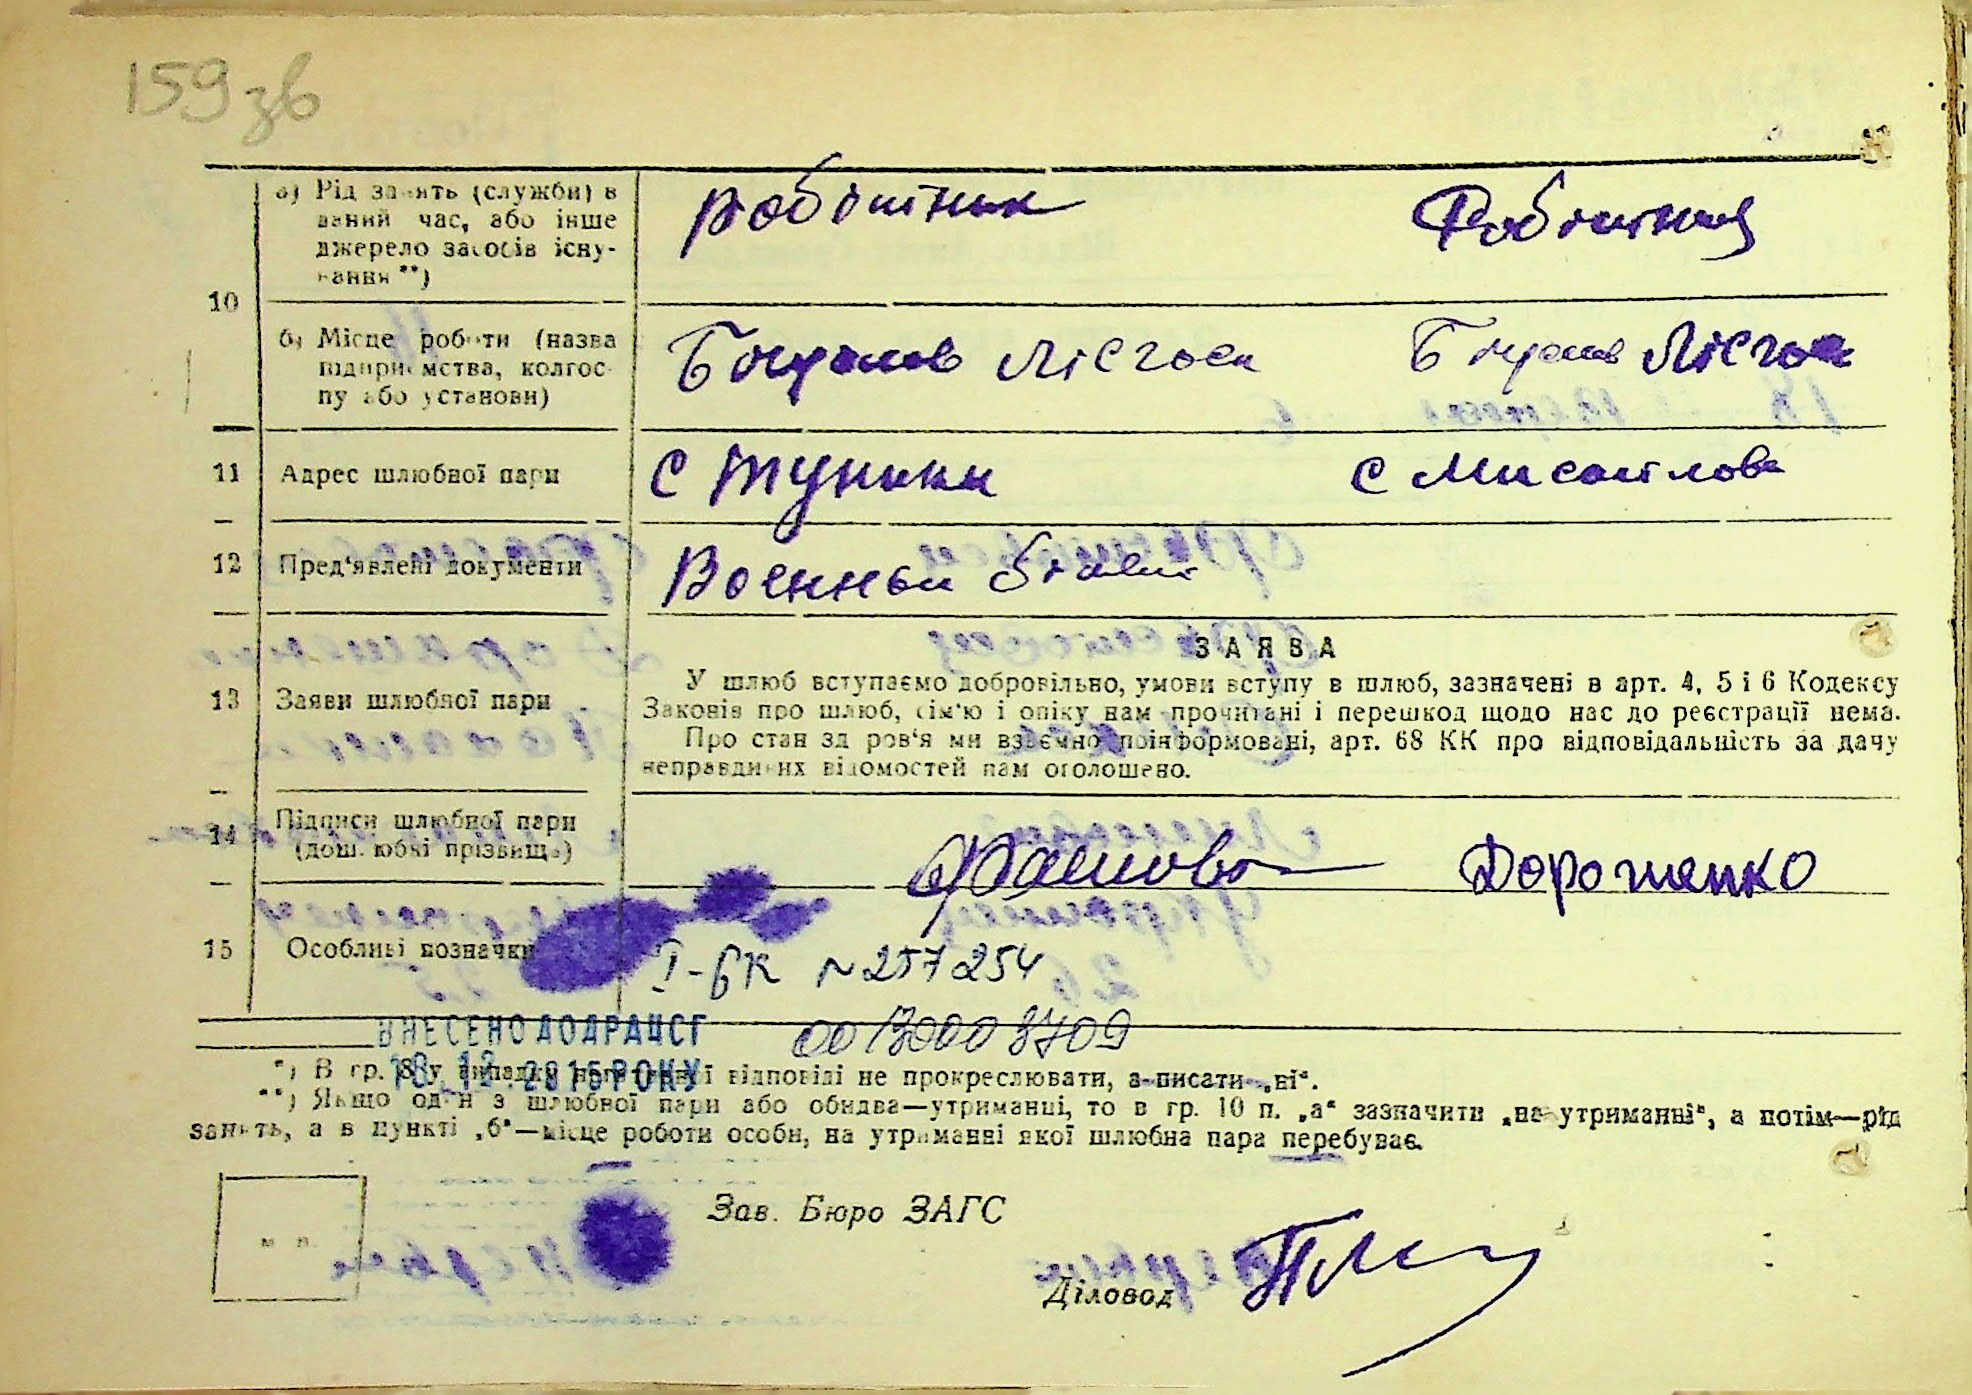 159 зв
а) Рід занять (служби) в
даний час, або інше
джерело засобів існу-
вання **)
робітник
Робітниця
10
б) Місце роботи (назва
підприємства, колгос-
пу або установи)
Лісгосп
Лісгосп
11
Адрес шлюбної пари
с
с Михайловка
12
Пред'явлені документи
Военный билет
13
Заяви шлюбної пари
ЗАЯВА
У шлюб вступаємо добровільно, умови вступу в шлюб, зазначені в арт. 4, 5 і 6 Кодексу
Законів про шлюб, сім'ю і опіку нам прочитані і перешкод щодо нас до реєстрації нема.
Про стан здоров'я ми взаємно поінформовані, арт. 68 КК про відповідальність за дачу
неправдивих відомостей нам оголошено.
14
Підписи шлюбної пари
(дошлюбні прізвища)
Дорошенко
15
Особливі позначки
І-БК № 257254
00130003709
ВНЕСЕНО ДО ДРАЦСГ
18.12.2015 РОКУ
*) В гр. 8 у випадку негативної відповіді не прокреслювати, а писати „ні“.
**) Якщо один з шлюбної пари або обидва—утриманці, то в гр. 10 п. „а“ зазначити „на утриманні“, а потім—рід
занять, а в пункті „б“—місце роботи особи, на утриманні якої шлюбна пара перебуває.
м. п.
Зав. Бюро ЗАГС
Діловод